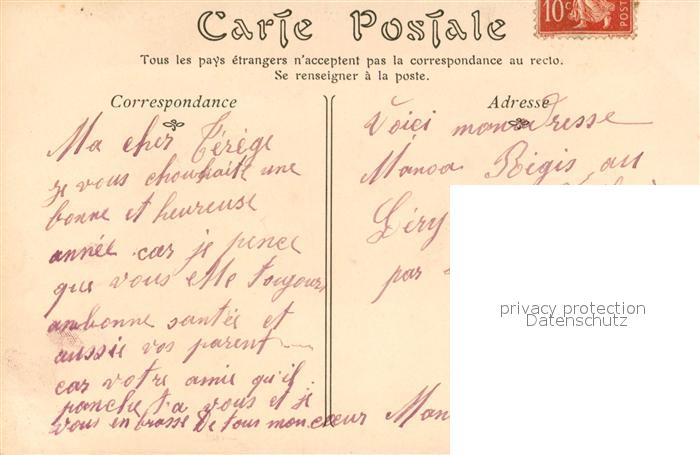 Carte Postale
Tous les pays étrangers n'acceptent pas la correspondance au recto.
Se renseigner à la poste.
10c
POSTES
Correspondance
Ma cher Térége
je vous chouhaite une
bonne et heureuse
année car je pence
que vous ette toujours
anbonne santée et
aussie vos parent
car votre amie qu'il
panche ta vous et je
vous en brasse De tous mon cœur Man
Adresse
Voici mon adresse
Manoa Régis au
Léry
par
privacy protection
Datenschutz